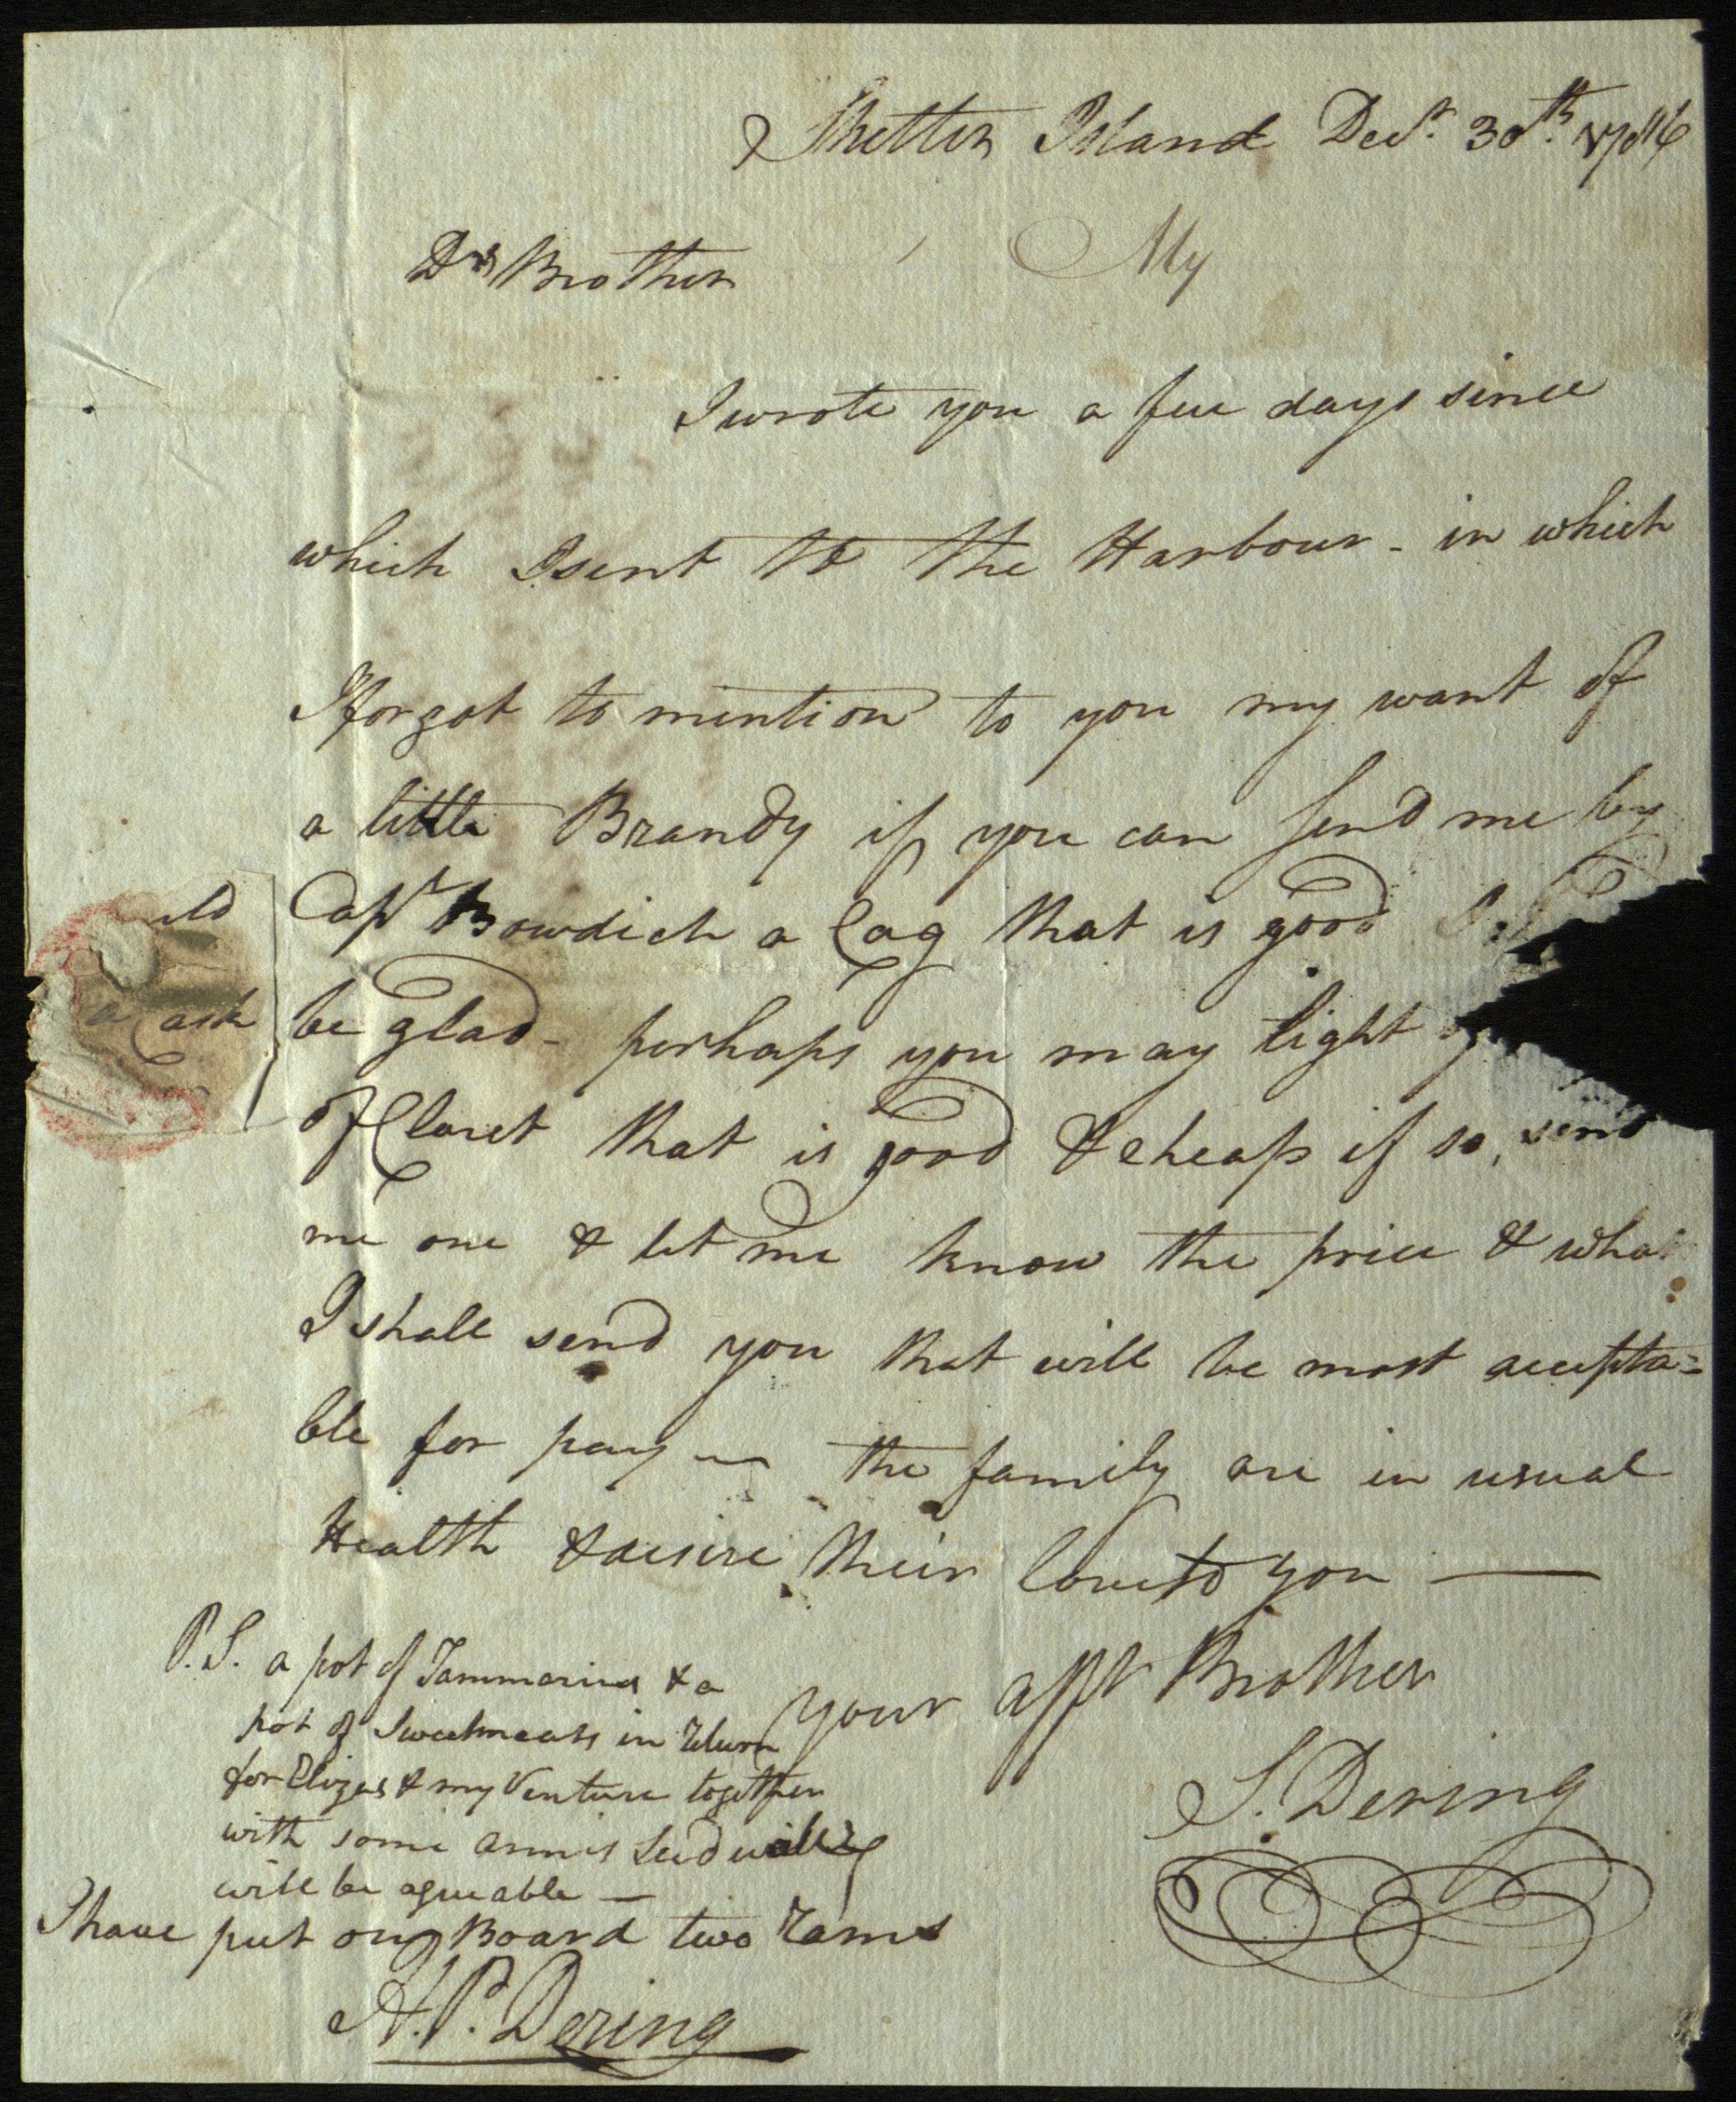 Shelter Island Decr. 30th. 1786
My
Dr Brother
I wrote you a few days since
which I sent to the Harbour - in which
I forgot to mention to you my want of
a little Brandy if you can send me by
Capt Bowdich a Cag that is good I
uld
be glad - perhaps you may light
a Cask
of Claret that is good & cheap if so, send
me one & let me know the price & what
I shall send you that will be most accepta=
ble for pay — the family are in usual
Health & desire their love to you —
your afft Brother
S. Dering
P.S. a pot of Tammarind & a
pot of Sweetmeats in return
for Elizas & my Venture together
with some annis Seed
will be agreeable —
I have put on Board two Rams
H.P. Dering